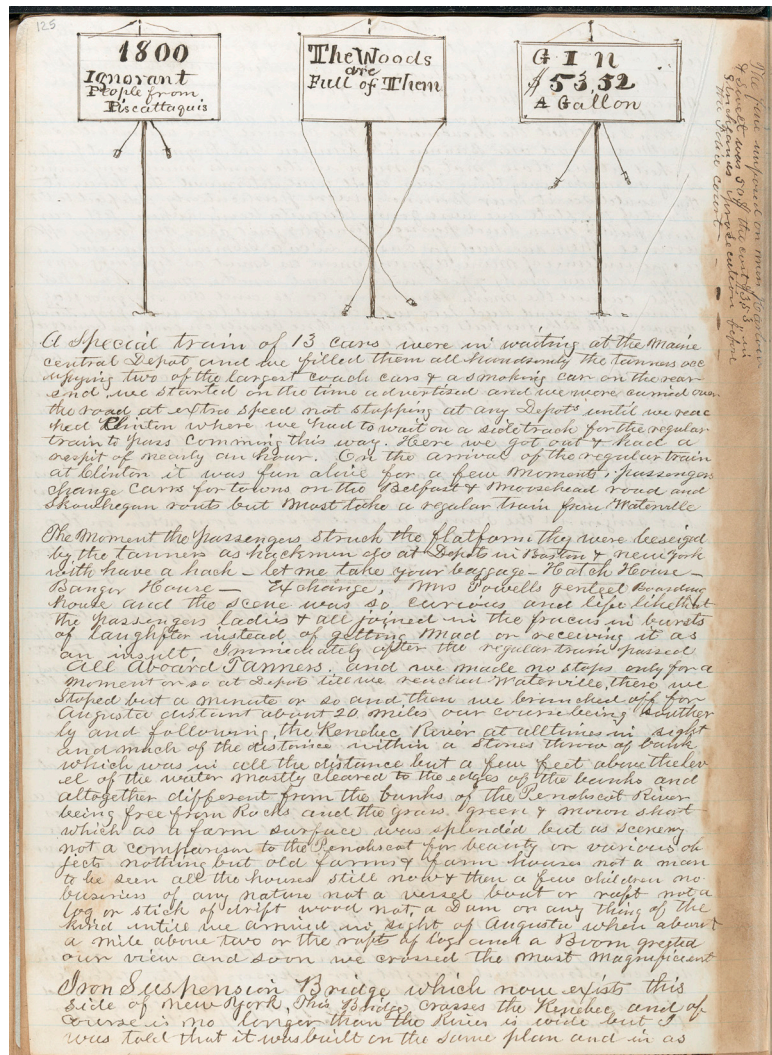 125
1800
Ignorant
People from
Piscattaquis
The Woods
are
Full of Them
G I N
$ 53,52
A Gallon
The fine imposed on
& Sweet was 50$ the cost $353 in
prosecution before
the Police Court
A Special train of 13 cars were in waiting at the Maine
central Depot and we filled them all handsomly the tanners occ
upying two of the largest coach cars & a smoking car on the rear
end we started on the time advertised and we were carried over
the road at extra speed not stopping at any Depots until we reac
hed Clinton where we had to wait on a side track for the regular
train to pass comming this way. Here we got out & had a
respit of nearly an hour. On the arrival of the regular train
at Clinton it was fun alive for a few moments, passengers
change carrs for towns on the Belfast & Moosehead road and
Skowhegan routs but must take a regular train from Waterville
The Moment the passengers struck the platform they were beeseiged
by the tanners as hackmen do at Depots in Boston & New York
with have a hack – let me take your baggage – Hatch House –
Bangor House – Exchange, Mrs Powells genteel Boarding
house and the scene was so curious and life like that
the passengers ladies & all joined in the fracus in bursts
of laughfter instead of getting mad or receiving it as
an insult. Immediately after the regular train passed
All Aboard Tanners. and we made no stops only for a
moment or so at Depot till we reached Waterville, there we
stoped but a minute or so and then we branched off for
Augusta distant about 20 miles our course being Souther
ly and following the Kenebec River at all times in sight
and much of the distance within a stones throw of bank
which was in all the distance but a few feet above the lev
el of the water mostly cleared to the edges of the banks and
altogether different from the banks of the Penobscot River
being free from Rocks and the grass green & mown short
which as a farm surface was splendid but as scenery
not a comparison to the Penobscot for beauty or various ob
jects nothing but old farms & farm houses not a man
to be seen all the houses still now & then a few children no
business of any nature not a vessel boat or raft not a
log or stick of drift wood not a Dam or any thing of the
kind intill we arrived in sight of Augusta when about
a mile above two or the rafts of logs and a Boom greeted
our view and soon we crossed the most magnificent
Iron Suspension Bridge which now exists this
side of New York, This Bridge crosses the Kenebec and of
course is no longer than the River is wide but I
was told that it was built on the same plan and in as